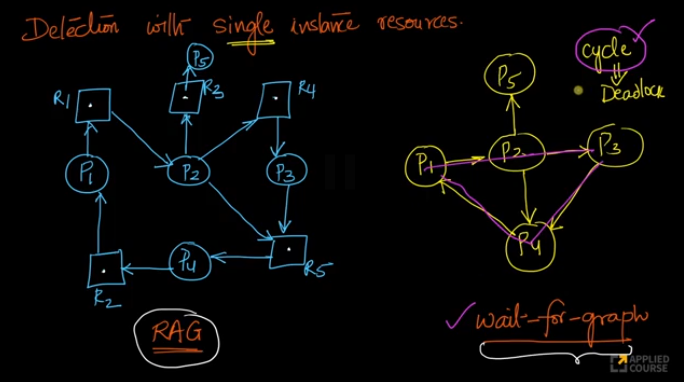 Detection with single instance resources.
P5
R1
R3
R4
P1
P2
P3
P4
R2
R5
RAG
cycle
Deadlock
P5
P1
P2
P3
P4
wait-for-graph
APPLIED
COURSE